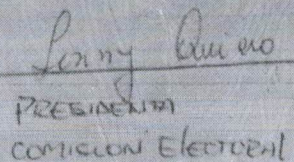 Lenny Quiero
PRESIDENTA
COMISION ELECTORAL